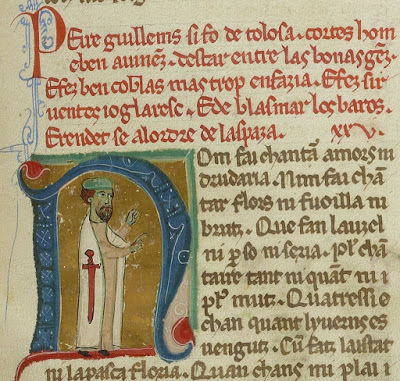 PEire guillems si fo de tolosa. cortes hom
eben auinẽz. destar entre las bonas gẽz.
Efez ben coblas mas trop enfazia. Efez sir
uentes ioglaresc. Ede blasmar los baros.
Erendet se alordre delaspaza. xxv.
Nom fai chantar amors ni
drudaria. Nim fai chã
tar flors ni fuoilla ni
brutz. Que fan lauzel
ni seria. chã
taire tant ni quãt ni
mutz. Quatressi o
chan quant lyuerns es
uengutz. Cũ fatz laistat
ni lapasca floria. Quan chans mi plai